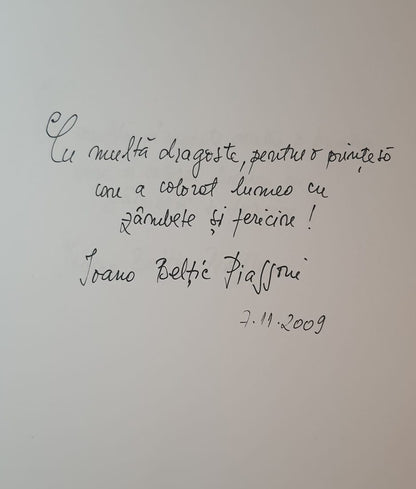 Cu multă dragoste, pentru o prințesă
care a colorat lumea cu
zâmbete și fericire !
Ioana Beltic Piassoni
7.11.2009